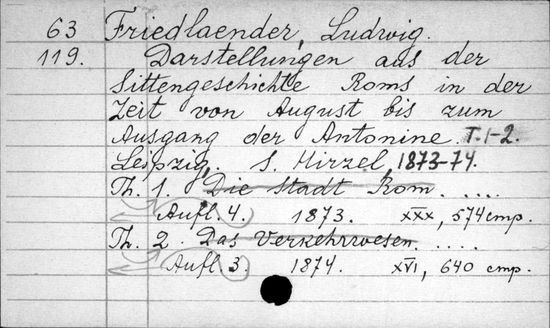 63 Friedlaender, Ludwig.
119. Darstellungen aus der
Sittengeschichte Roms in der
Zeit von August bis zum
Ausgang der Antonine. T. 1-2.
Leipzig, S. Hirzel, 1873-74.
Th. 1. Die Stadt Rom. ....
Aufl. 4. 1873. XXX, 574 стр.
Th. 2. Das Verkehrswesen. ....
Aufl. 3. 1874. XVI, 640 стр.